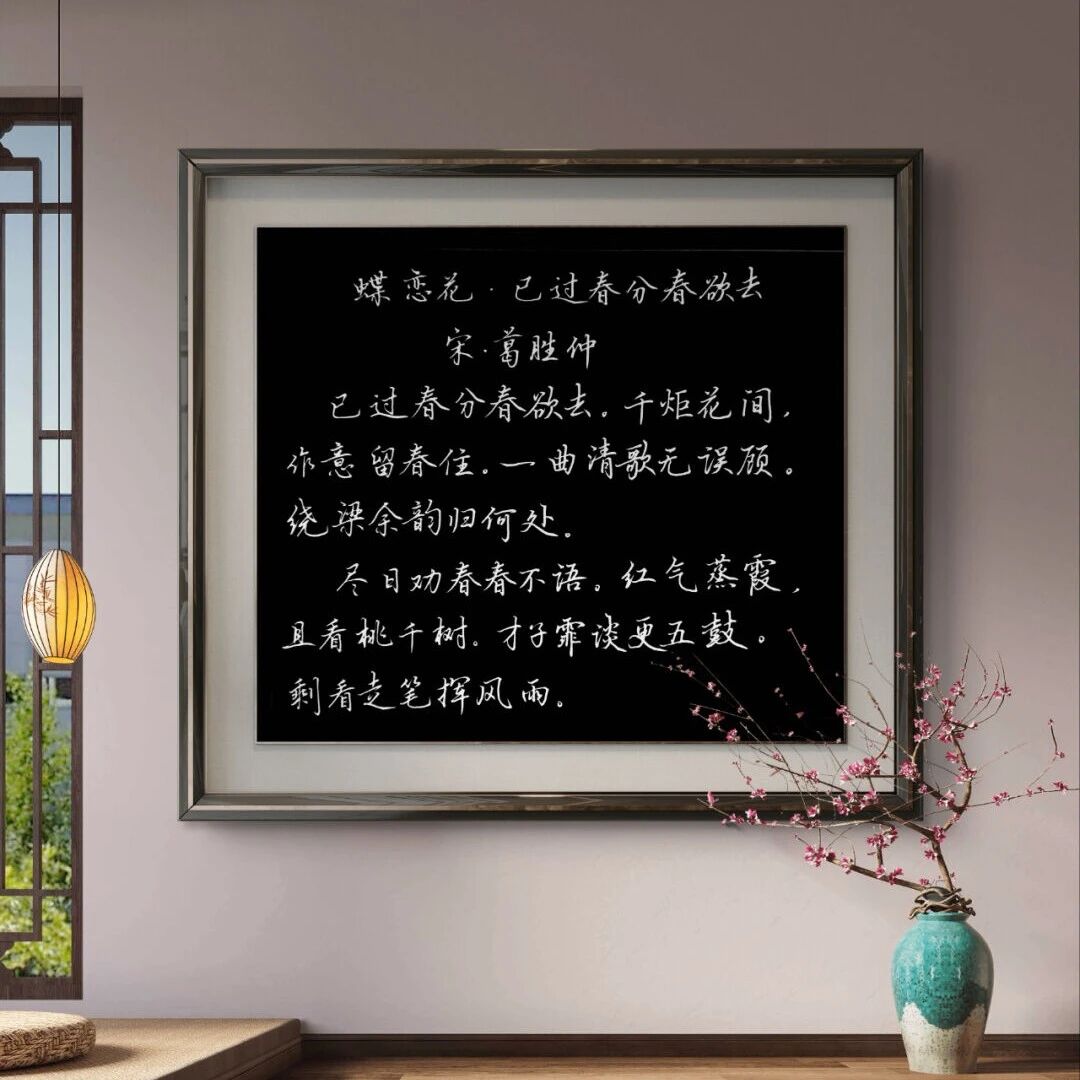 蝶恋花·已过春分春欲去
宋·葛胜仲
已过春分春欲去。千炬花间，
作意留春住。一曲清歌无误顾。
绕梁余韵归何处。
尽日劝春春不语。红气蒸霞，
且看桃千树。才子霏谈更五鼓。
剩看走笔挥风雨。